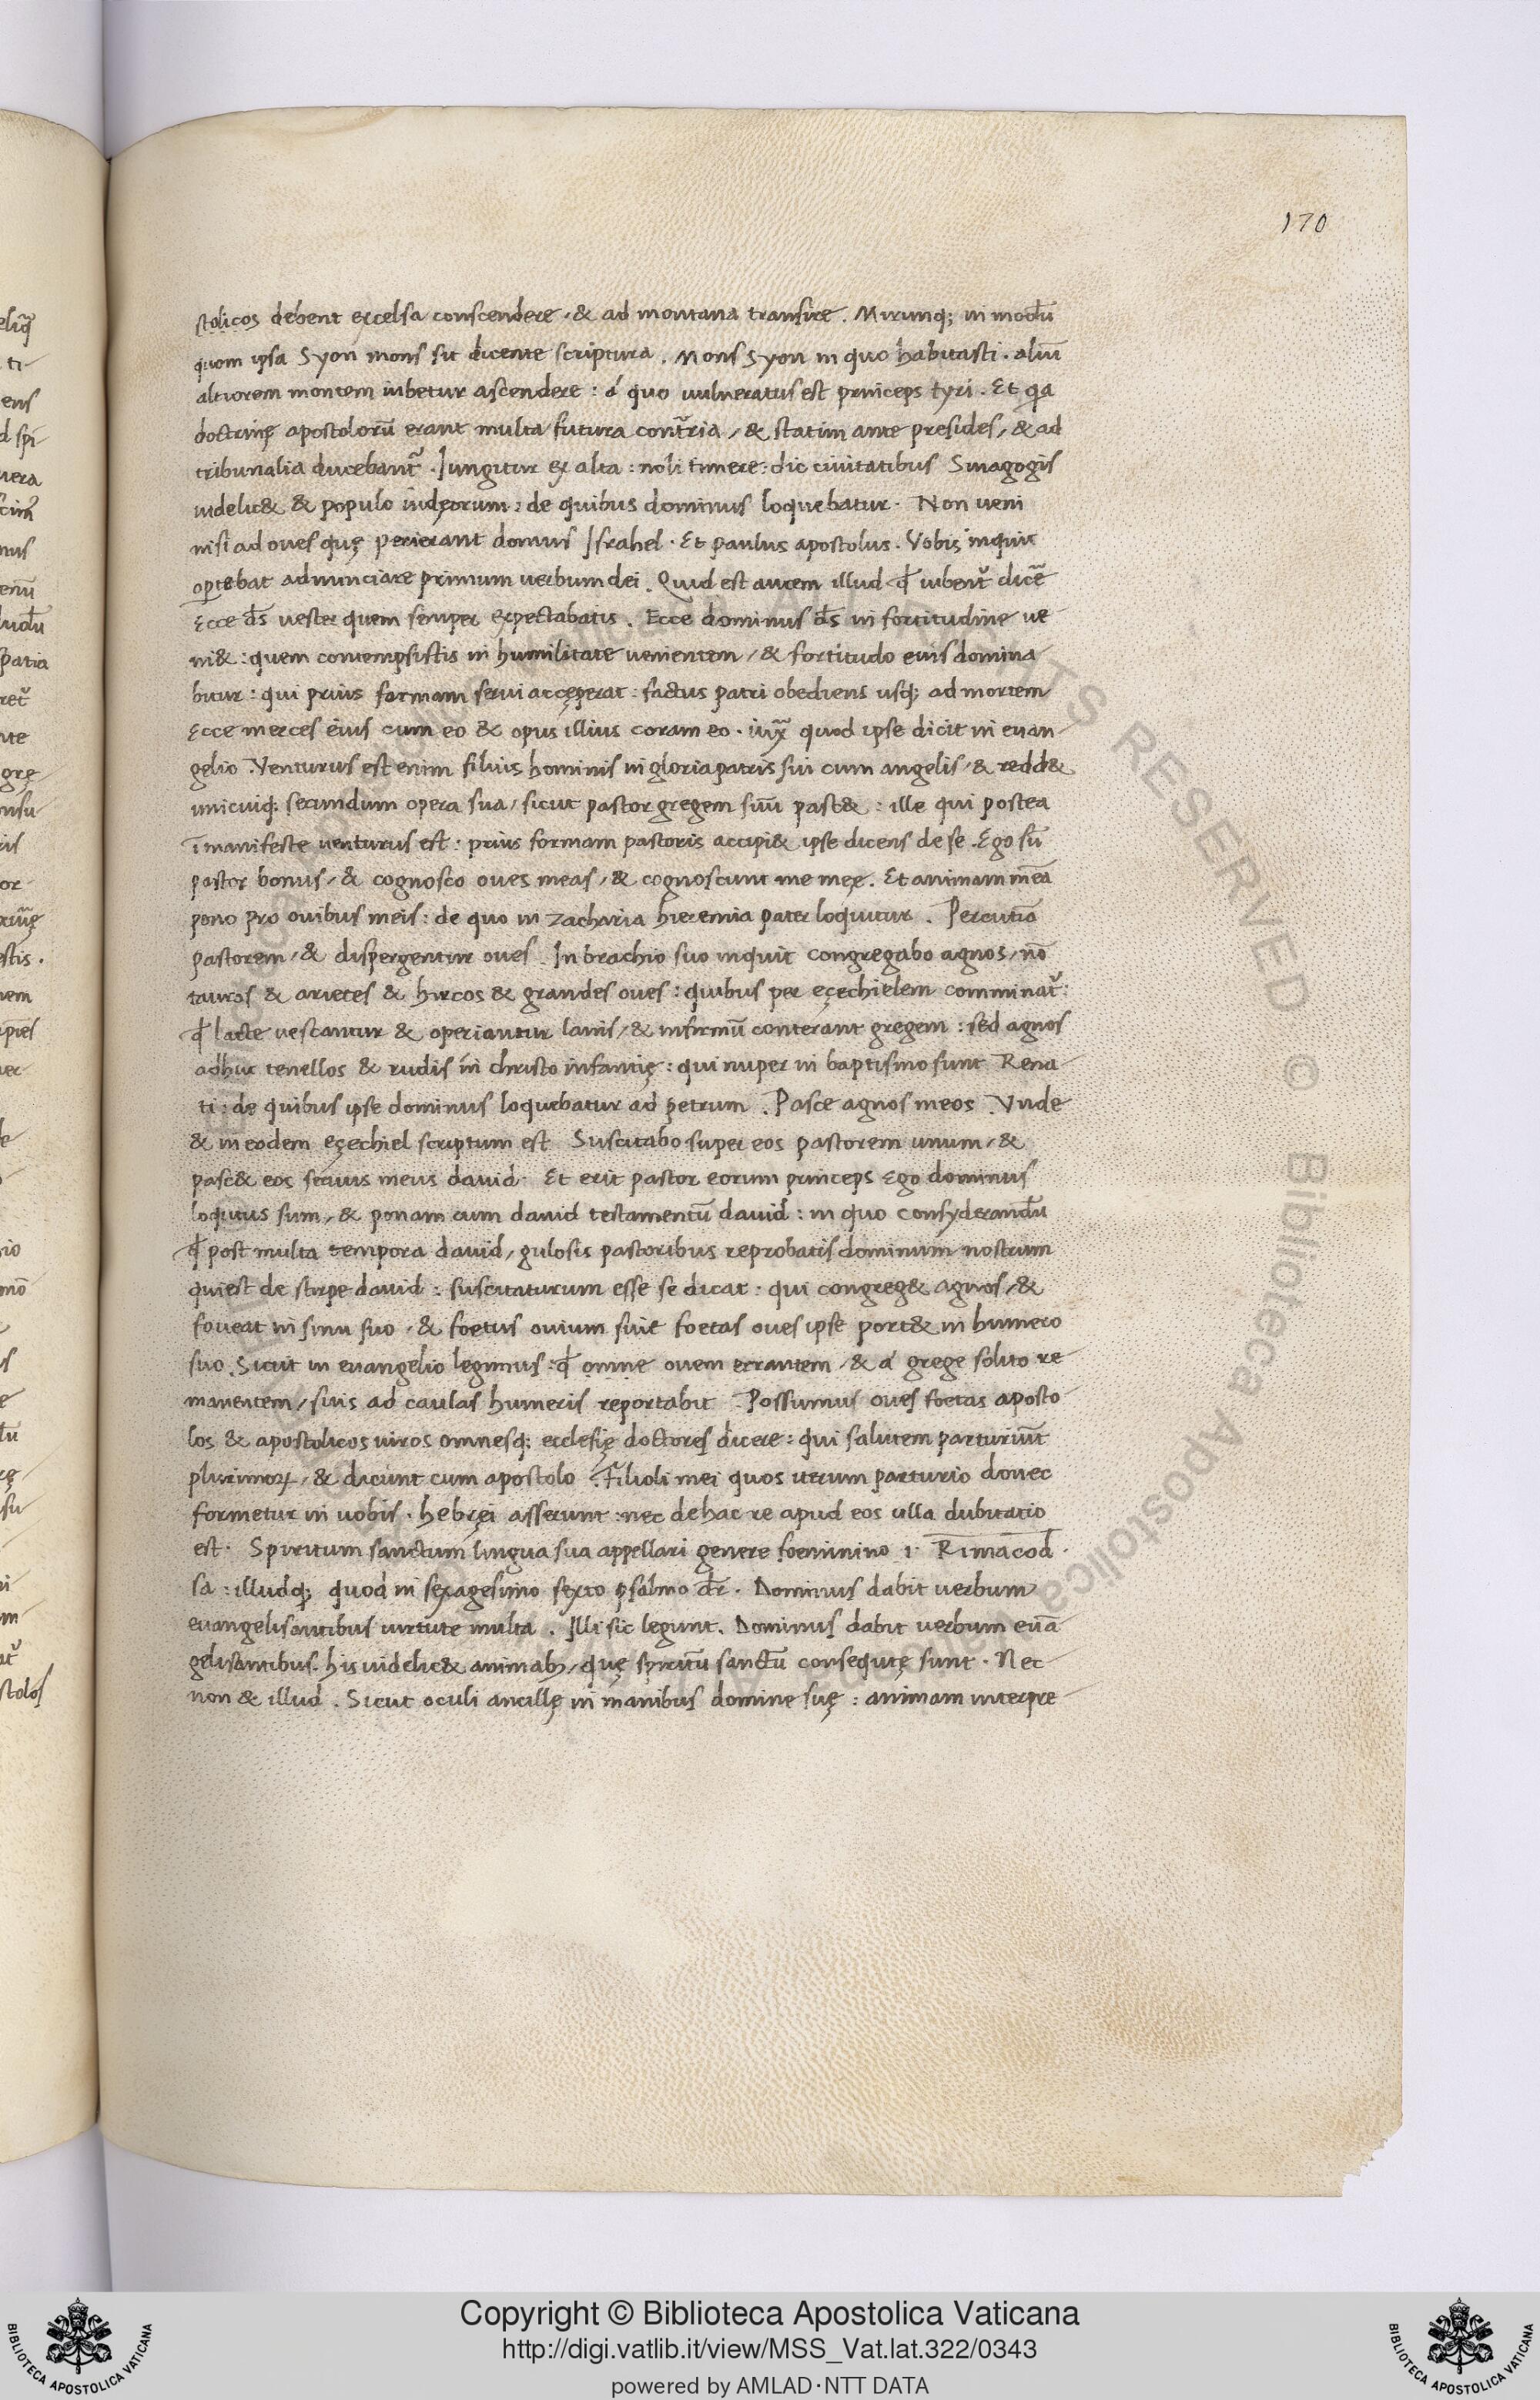 170
stolicos debent excelsa conscendere, & ad montana transire. Mirunq; in modū
quom ipsa Syon mons sit dicente scriptura. Mons Syon in quo habitasti. aliū
altiorem montem iubetur ascendere: á quo uulneratus est princeps tyri. Et qa
doctrinę apostolorū erant multa futura cont̃ria, & statim ante presides, & ad
tribunalia ducebant᷑. Iungitur ex alta: noli timere: dic ciuitatibus Sinagogis
uidelic& & populo iudęorum: de quibus dominus loquebatur. Non ueni
nisi ad oues quę perierant domus Israhel. Et paulus apostolus. Vobis inquit
oꝑtebat adnunciare primum uerbum dei. Quid est autem illud qđ iubent᷑ dicẽ
Ecce d̄s uester quem semper expectabatis. Ecce dominus d̄s in fortitudine ue
ni&: quem contempsistis in humilitate uenientem, & fortitudo eius domina
bitur: qui prius formam serui accęperat: factus patri obediens usq; ad mortem
Ecce merces eius cum eo & opus illius coram eo. iux̃ quod ipse dicit in euan
gelio. Venturus est enim filius hominis in gloria patris sui cum angelis, & redd&
unicuiq; secundum opera sua, sicut pastor gregem suū past&: ille qui postea
ī manifeste uenturus est: prius formam pastoris accipi& ipse dicens de se. Ego sū
pastor bonus, & cognosco oues meas, & cognoscunt me meę. Et animam meā
pono pro ouibus meis: de quo in zacharia hieremia pater loquitur. Percutiā
pastorem, & dispergentur oues. In brachio suo inquit congregabo agnos, nō
tauros & arietes & hircos & grandes oues: quibus per eęechielem comminat᷑:
qđ lacte uescantur & operiantur lanis, & infirmū conterant gregem: sed agnos
adhuc tenellos & rudis in christo infantię: qui nuper in baptismo sunt Rena
ti: de quibus ipse dominus loquebatur ad petrum. Pasce agnos meos. Vnde
& in eodem eęechiel scriptum est Suscitabo super eos pastorem unum, &
pasc& eos seruus meus dauid. Et erit pastor eorum princeps Ego dominus
loqutus sum, & ponam cum dauid testamentū dauid: in quo consyderandū
qđ post multa tempora dauid, gulosis pastoribus reprobatis dominum nostrum
qui est de stirpe dauid: suscitaturum esse se dicat. qui congreg& agnos, &
foueat in sinu suo, & foetus ouium siue foetas oues ipse port& in humero
suo. Sicut in euangelio legimus: qđ omne ouem errantem, & á grege solito re
manentem, suis ad caulas humeris reportabit. Possumus oues foetas aposto
los & apostolicos uiros omnesq; ecclesię doctores dicere: qui salutem parturiūt
plurimoꝝ, & dicunt cum apostolo. Filioli mei quos iterum parturio donec
formetur in uobis. hebręi asserunt: nec de hac re apud eos ulla dubitatio
est. Spiritum sanctum lingua sua appellari genere foeminino .i. Rimacod
sa: illudq; quod in sexagesimo sexto psalmo dr̄. Dominus dabit uerbum
euangelisantibus uirtute multa. Illi sic legunt. Dominus dabit uerbum euā
gelisantibus. his uidelic& animabȝ, quę spiritū sanctū consequtę sunt. Nec
non & illud. Sicut oculi ancillę in manibus domine suę: animam interpre
Copyright © Biblioteca Apostolica Vaticana
http://digi.vatlib.it/view/MSS_Vat.lat.322/0343
powered by AMLAD·NTT DATA